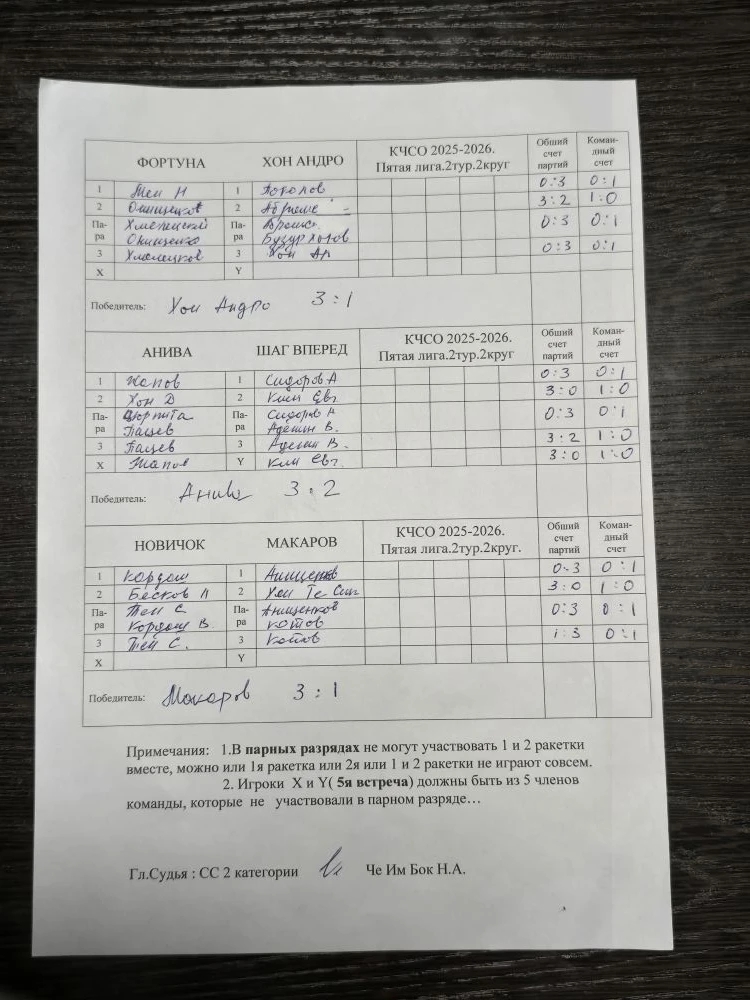 ФОРТУНА ХОН АНДРО КЧСО 2025-2026. Пятая лига.2тур.2круг Общий счет партий Коман-дный счет
1 Тен Н 1 0:3 0:1
2 Онищенков 2 3:2 1:0
Па-ра Хмелецкой 0:3 0:1
Онищенко
3 Хмелецков 3 Хон Ан 0:3 0:1
X Y
Победитель: Хон Андро 3:1
АНИВА ШАГ ВПЕРЕД КЧСО 2025-2026. Пятая лига.2тур.2круг Общий счет партий Коман-дный счет
1 Жапов 1 Сидоров А 0:3 0:1
2 Хон Д 2 Ким Евг. 3:0 1:0
Па-ра Па-ра Сидоров А 0:3 0:1
Пашев Аделин В.
3 Пашев 3 Аделин В. 3:2 1:0
X Жапов Y Ким Евг. 3:0 1:0
Победитель: Анива 3:2
НОВИЧОК МАКАРОВ КЧСО 2025-2026. Пятая лига.2тур.2круг. Общий счет партий Коман-дный счет
1 Кордаш 1 Анищенков 0:3 0:1
2 Бесков 2 Хен Те Сик 3:0 1:0
Па-ра Тен С. Па-ра Анищенков 0:3 0:1
Кордаш В. Котов
3 Тен С. 3 Котов 1:3 0:1
X Y
Победитель: Макаров 3:1
Примечания: 1.В парных разрядах не могут участвовать 1 и 2 ракетки
вместе, можно или 1я ракетка или 2я или 1 и 2 ракетки не играют совсем.
2. Игроки X и Y( 5я встреча) должны быть из 5 членов
команды, которые не участвовали в парном разряде…
Гл.Судья : СС 2 категории Че Им Бок Н.А.